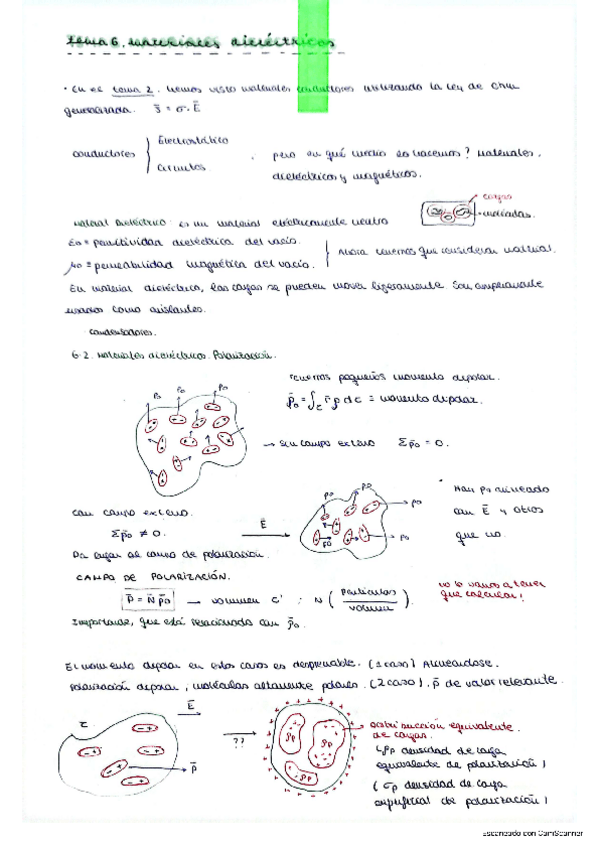 Tema 6. Materiales dieléctricos
• En el tema 2. hemos visto materiales conductores utilizando la ley de Ohm
generalizada. J̄ = σ·Ē
conductores
Electrostático
Circuitos
; pero en qué medio lo hacemos? Materiales.
dieléctricos y magnéticos.
cargas
ligadas.
Material Dieléctrico: es un material eléctricamente neutro
ε0 = permitividad dieléctrica del vacío.
μ0 = permeabilidad magnética del vacío.
Ahora tenemos que considerar material.
En material dieléctrico, las cargas se pueden mover ligeramente. Son ampliamente
usados como aislantes.
condensadores.
6.2. Materiales dieléctricos. Polarización.
Tenemos pequeños momento dipolar.
p̄0 = ∫τ r̄ρ dτ = momento dipolar.
p0 p0 p0
→ Sin campo externo Σp̄0 = 0.
Con campo externo.
Σp̄0 ≠ 0.
Ē
p0 p0 p0 p0 p0
Hay p0 alineado
con Ē y otros
que no.
Da lugar al campo de polarización.
CAMPO DE POLARIZACIÓN.
P̄ = N p̄0 → volumen τ' ; N ( partículas / volumen ).
no lo vamos a tener
que calcular!
Importante, que está relacionado con p̄0.
El momento dipolar en estos casos es despreciable. (1 caso) Alineándose.
Polarización dipolar, moléculas altamente polares. (2 caso). P̄ de valor relevante.
τ
Ē
P̄
??
ρp ρp ρp
distribución equivalente
de cargas.
(ρp densidad de carga
equivalente de polarización)
(σp densidad de carga
superficial de polarización)
Escaneado con CamScanner